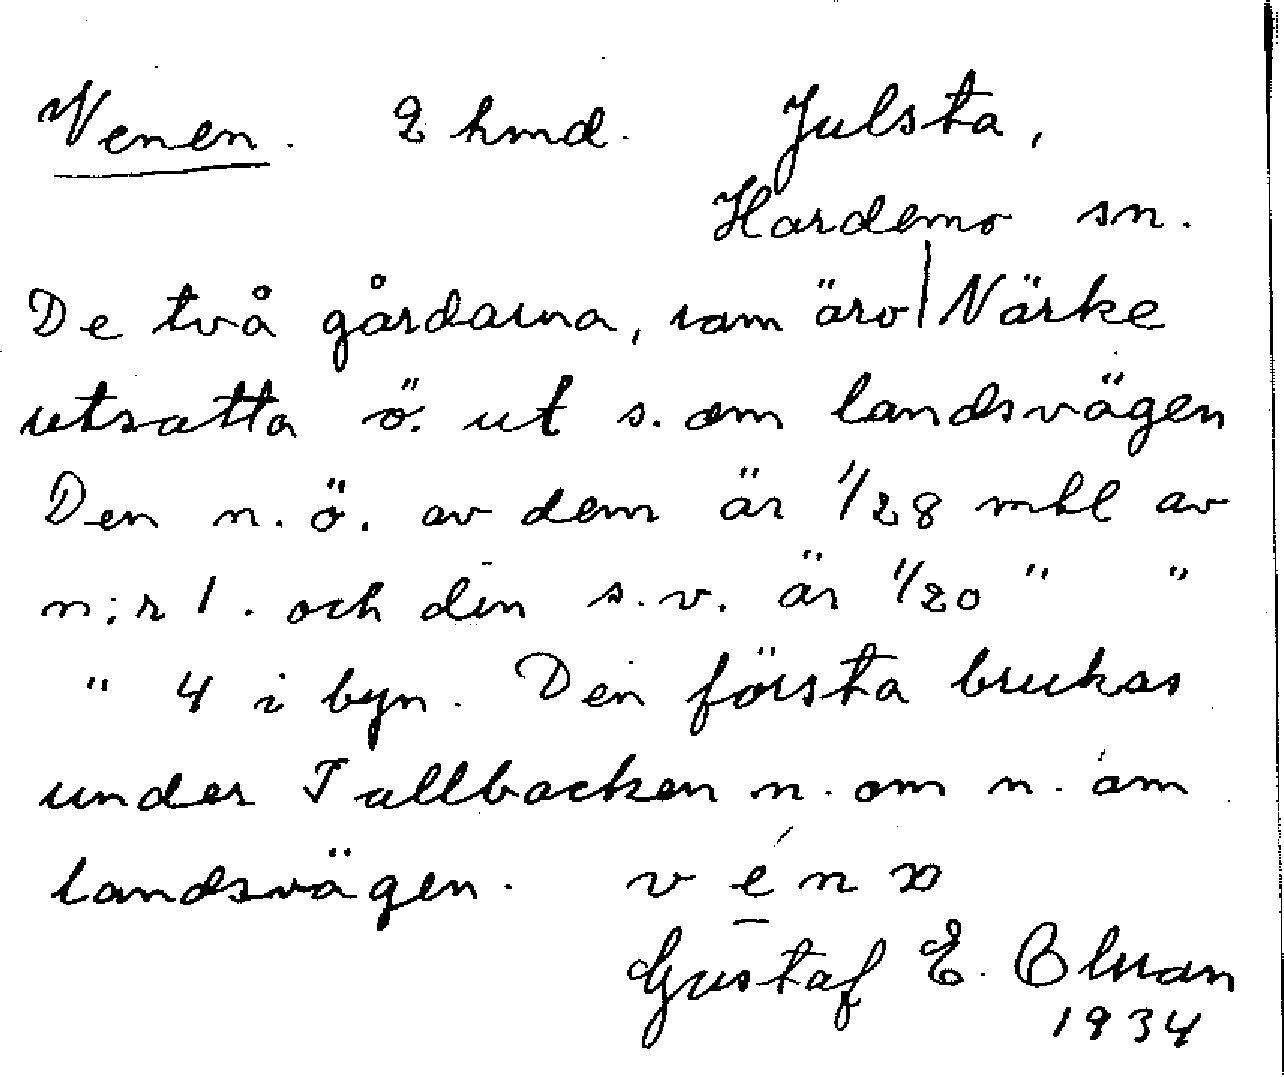 Venen. 2 hmd. Julsta,
Hardemo sn.
De två gårdarna, som äro | Närke
utsatta ö. ut s. om landsvägen
Den n.ö. av dem är 1/28 mtl av
n:r 1. och den s.v. är 1/20 " "
" 4 i byn. Den första brukas
under Tallbacken n. om n. om
landsvägen. vénn
Gustaf E. Olsson
1934